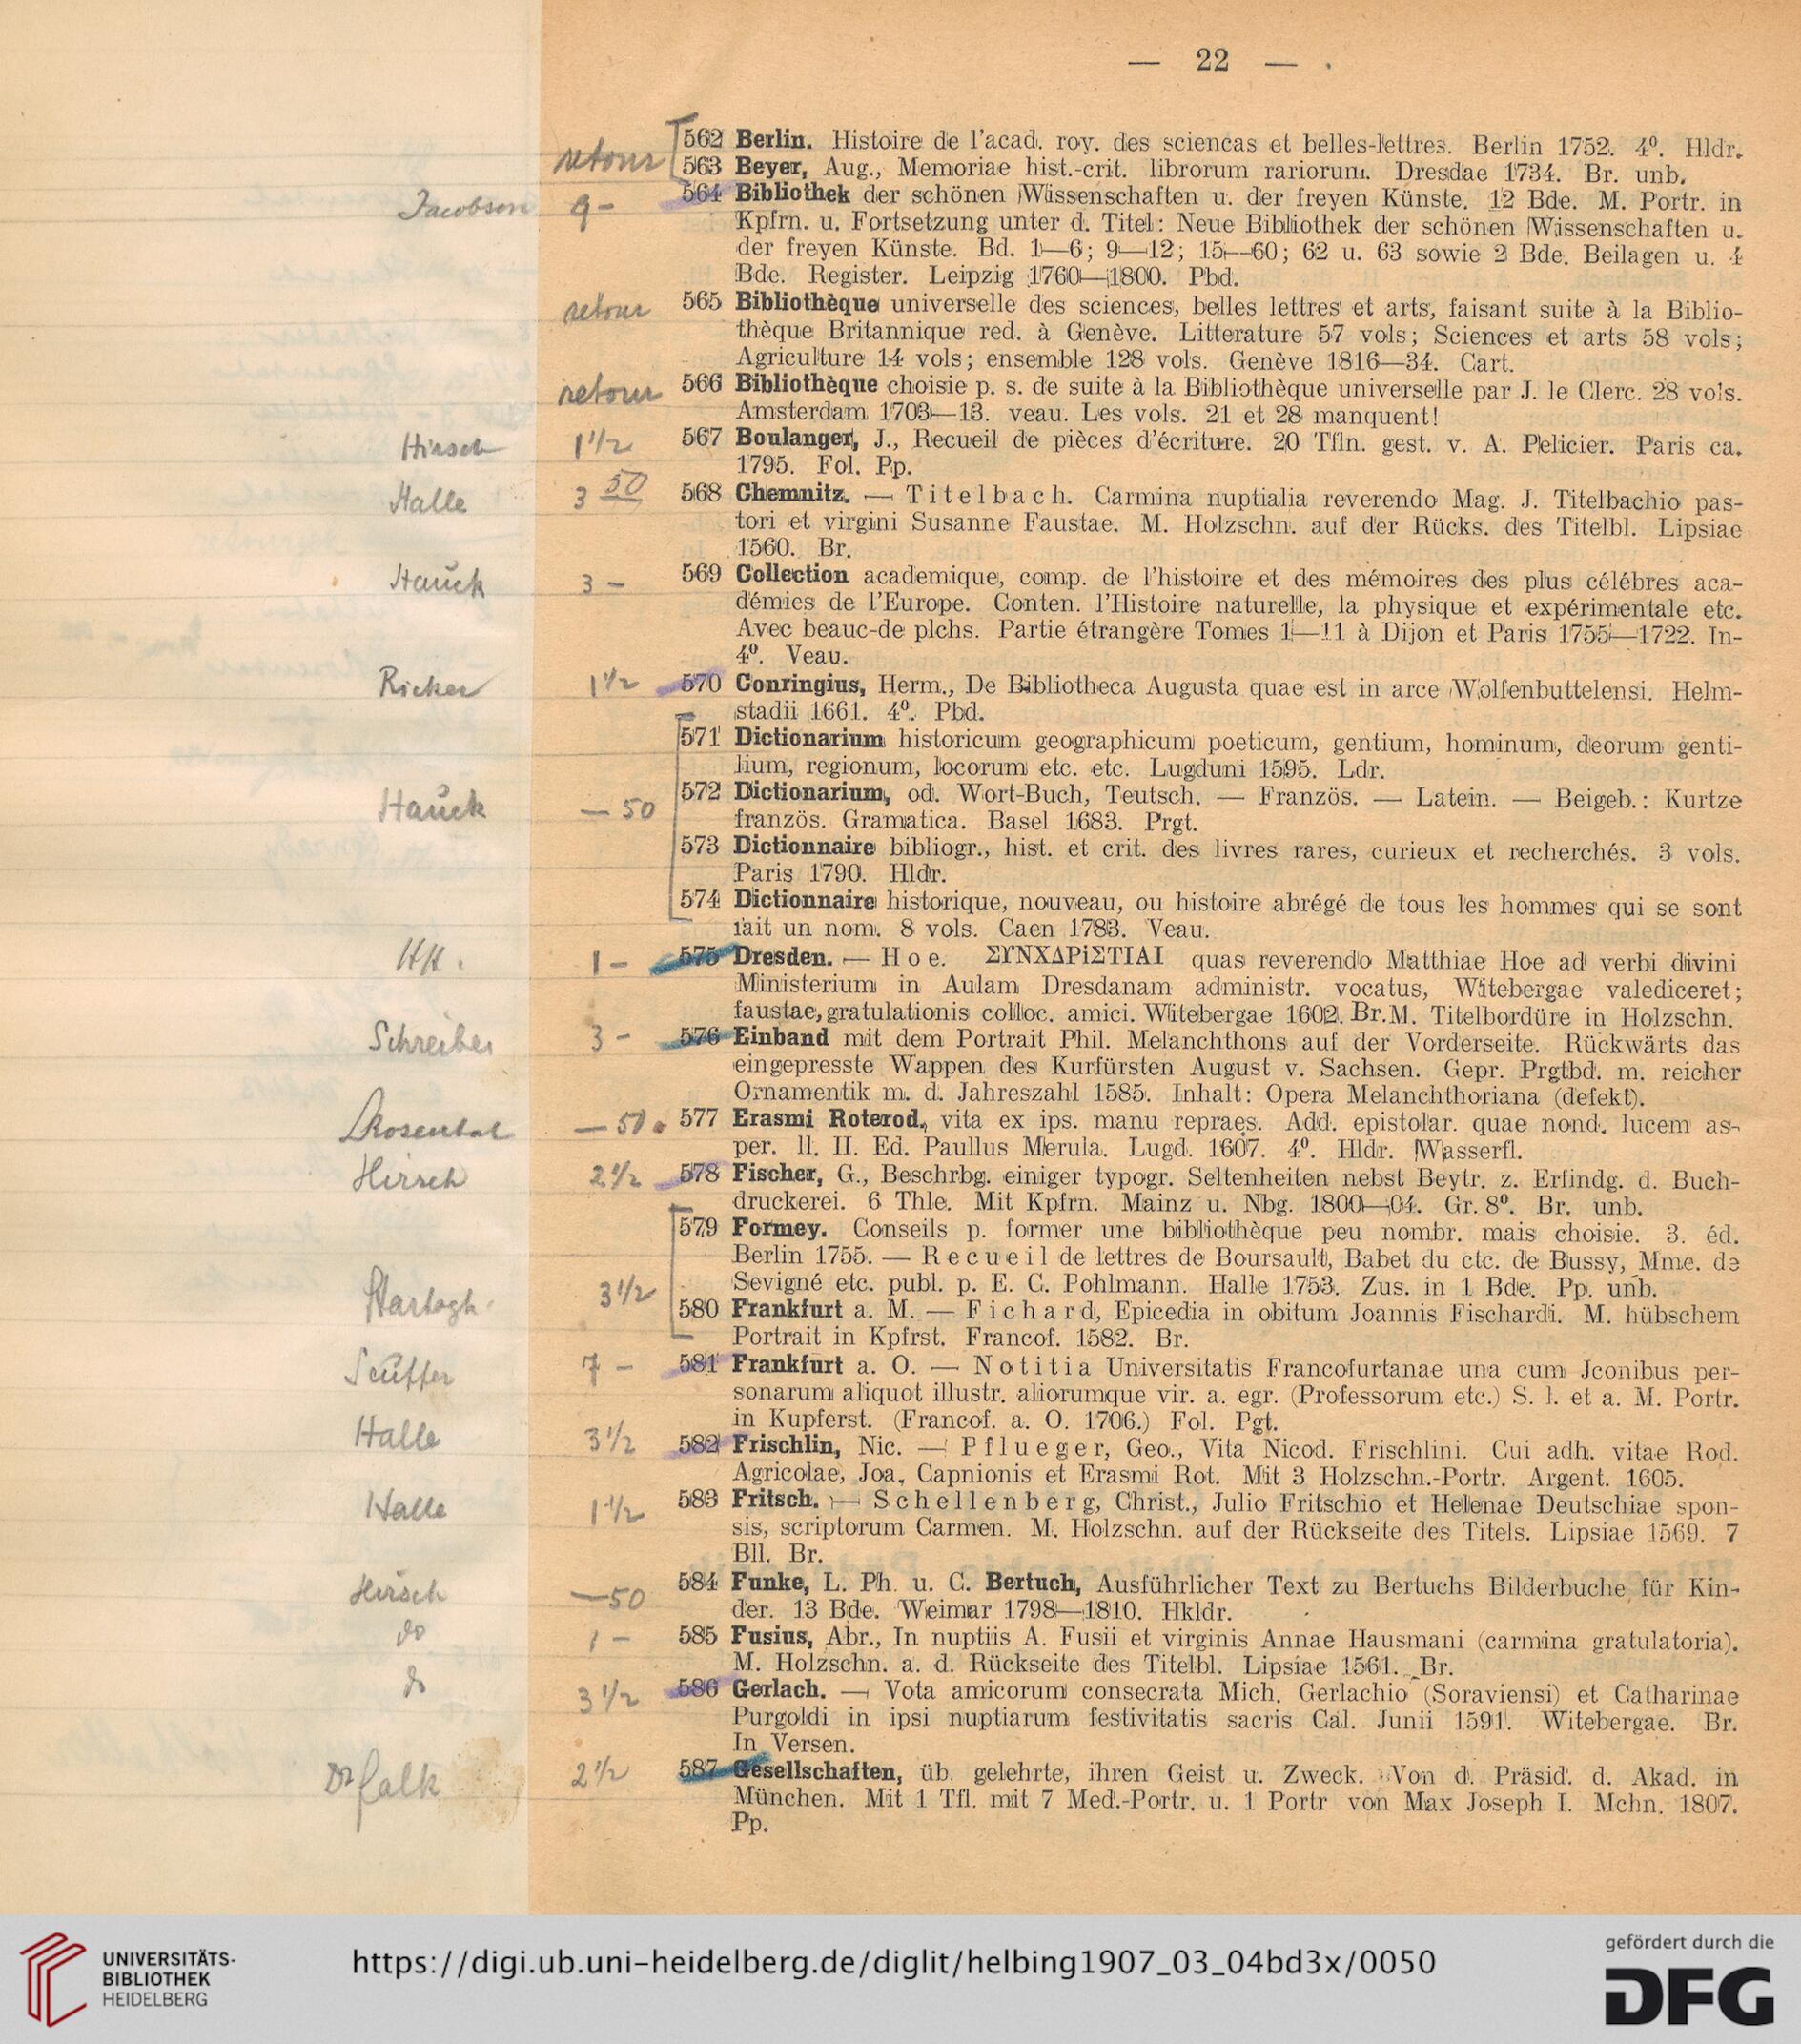 — 22 —
retour
562 Berlin. Histoire de l'acad. roy. des sciencas et belles-lettres. Berlin 1752. 4⁰. Hldr.
563 Beyer, Aug., Memoriae hist.-crit. librorum rariorum. Dresdae 1734. Br. unb.
Jacobson 9 - 564 Bibliothek der schönen Wissenschaften u. der freyen Künste. 12 Bde. M. Portr. in
Kpfrn. u. Fortsetzung unter d. Titel: Neue Bibliothek der schönen Wissenschaften u.
der freyen Künste. Bd. 1—6; 9—12; 15—60; 62 u. 63 sowie 2 Bde. Beilagen u. 4
Bde. Register. Leipzig 1760—1800. Pbd.
retour 565 Bibliothèque universelle des sciences, belles lettres et arts, faisant suite à la Biblio-
thèque Britannique red. à Genève. Litterature 57 vols; Sciences et arts 58 vols;
Agriculture 14 vols; ensemble 128 vols. Genève 1816—34. Cart.
retour 566 Bibliothèque choisie p. s. de suite à la Bibliothèque universelle par J. le Clerc. 28 vols.
Amsterdam 1703—13. veau. Les vols. 21 et 28 manquent!
Hirsch 1 1/2 567 Boulanger, J., Recueil de pièces d'écriture. 20 Tfln. gest. v. A. Pelicier. Paris ca.
1795. Fol. Pp.
Halle 3 50 568 Chemnitz. — Titelbach. Carmina nuptialia reverendo Mag. J. Titelbachio pas-
tori et virgini Susanne Faustae. M. Holzschn. auf der Rücks. des Titelbl. Lipsiae
1560. Br.
Hauck 3 - 569 Collection academique, comp. de l'histoire et des mémoires des plus célébres aca-
démies de l'Europe. Conten. l'Histoire naturelle, la physique et expérimentale etc.
Avec beauc-de plchs. Partie étrangère Tomes 1—11 à Dijon et Paris 1755—1722. In-
4⁰. Veau.
Ricker 1 1/2 570 Conringius, Herm., De Bibliotheca Augusta quae est in arce Wolfenbuttelensi. Helm-
stadii 1661. 4⁰. Pbd.
571 Dictionarium historicum geographicum poeticum, gentium, hominum, deorum genti-
lium, regionum, locorum etc. etc. Lugduni 1595. Ldr.
Hauck — 50 572 Dictionarium, od. Wort-Buch, Teutsch. — Französ. — Latein. — Beigeb.: Kurtze
französ. Gramatica. Basel 1683. Prgt.
573 Dictionnaire bibliogr., hist. et crit. des livres rares, curieux et recherchés. 3 vols.
Paris 1790. Hldr.
574 Dictionnaire historique, nouveau, ou histoire abrégé de tous les hommes qui se sont
fait un nom. 8 vols. Caen 1783. Veau.
HH. 1 - 575 Dresden. — Hoe. ΣΥΝΧΔΡiΣΤΙΑΙ quas reverendo Matthiae Hoe ad verbi divini
Ministerium in Aulam Dresdanam administr. vocatus, Witebergae valediceret;
faustae, gratulationis colloc. amici. Witebergae 1602. Br. M. Titelbordüre in Holzschn.
Schreiber 3 - 576 Einband mit dem Portrait Phil. Melanchthons auf der Vorderseite. Rückwärts das
eingepresste Wappen des Kurfürsten August v. Sachsen. Gepr. Prgtbd. m. reicher
Ornamentik m. d. Jahreszahl 1585. Inhalt: Opera Melanchthoriana (defekt).
Rosental — 50 577 Erasmi Roterod., vita ex ips. manu repraes. Add. epistolar. quae nond. lucem as-
per. ll. II. Ed. Paullus Merula. Lugd. 1607. 4⁰. Hldr. Wasserfl.
Hirsch 2 1/2 578 Fischer, G., Beschrbg. einiger typogr. Seltenheiten nebst Beytr. z. Erfindg. d. Buch-
druckerei. 6 Thle. Mit Kpfrn. Mainz u. Nbg. 1800—04. Gr. 8⁰. Br. unb.
579 Formey. Conseils p. former une bibliothèque peu nombr. mais choisie. 3. éd.
Berlin 1755. — Recueil de lettres de Boursault, Babet du ctc. de Bussy, Mme. de
Sevigné etc. publ. p. E. C. Pohlmann. Halle 1753. Zus. in 1 Bde. Pp. unb.
3 1/2 580 Frankfurt a. M. — Fichard, Epicedia in obitum Joannis Fischardi. M. hübschem
Portrait in Kpfrst. Francof. 1582. Br.
7 - 581 Frankfurt a. O. — Notitia Universitatis Francofurtanae una cum Jconibus per-
sonarum aliquot illustr. aliorumque vir. a. egr. (Professorum etc.) S. l. et a. M. Portr.
in Kupferst. (Francof. a. O. 1706.) Fol. Pgt.
Halle 3 1/2 582 Frischlin, Nic. — Pflueger, Geo., Vita Nicod. Frischlini. Cui adh. vitae Rod.
Agricolae, Joa. Capnionis et Erasmi Rot. Mit 3 Holzschn.-Portr. Argent. 1605.
Halle 1 1/2 583 Fritsch. — Schellenberg, Christ., Julio Fritschio et Helenae Deutschiae spon-
sis, scriptorum Carmen. M. Holzschn. auf der Rückseite des Titels. Lipsiae 1569. 7
Bll. Br.
Hirsch —50 584 Funke, L. Ph. u. C. Bertuch, Ausführlicher Text zu Bertuchs Bilderbuche für Kin-
der. 13 Bde. Weimar 1798—1810. Hkldr.
do 1 - 585 Fusius, Abr., In nuptiis A. Fusii et virginis Annae Hausmani (carmina gratulatoria).
M. Holzschn. a. d. Rückseite des Titelbl. Lipsiae 1561. Br.
do 3 1/2 586 Gerlach. — Vota amicorum consecrata Mich. Gerlachio (Soraviensi) et Catharinae
Purgoldi in ipsi nuptiarum festivitatis sacris Cal. Junii 1591. Witebergae. Br.
In Versen.
Dr Falk 2 1/2 587 Gesellschaften, üb. gelehrte, ihren Geist u. Zweck. Von d. Präsid. d. Akad. in
München. Mit 1 Tfl. mit 7 Med.-Portr. u. 1 Portr von Max Joseph I. Mchn. 1807.
Pp.
UNIVERSITÄTS-
BIBLIOTHEK
HEIDELBERG
https://digi.ub.uni-heidelberg.de/diglit/helbing1907_03_04bd3x/0050
gefördert durch die
DFG